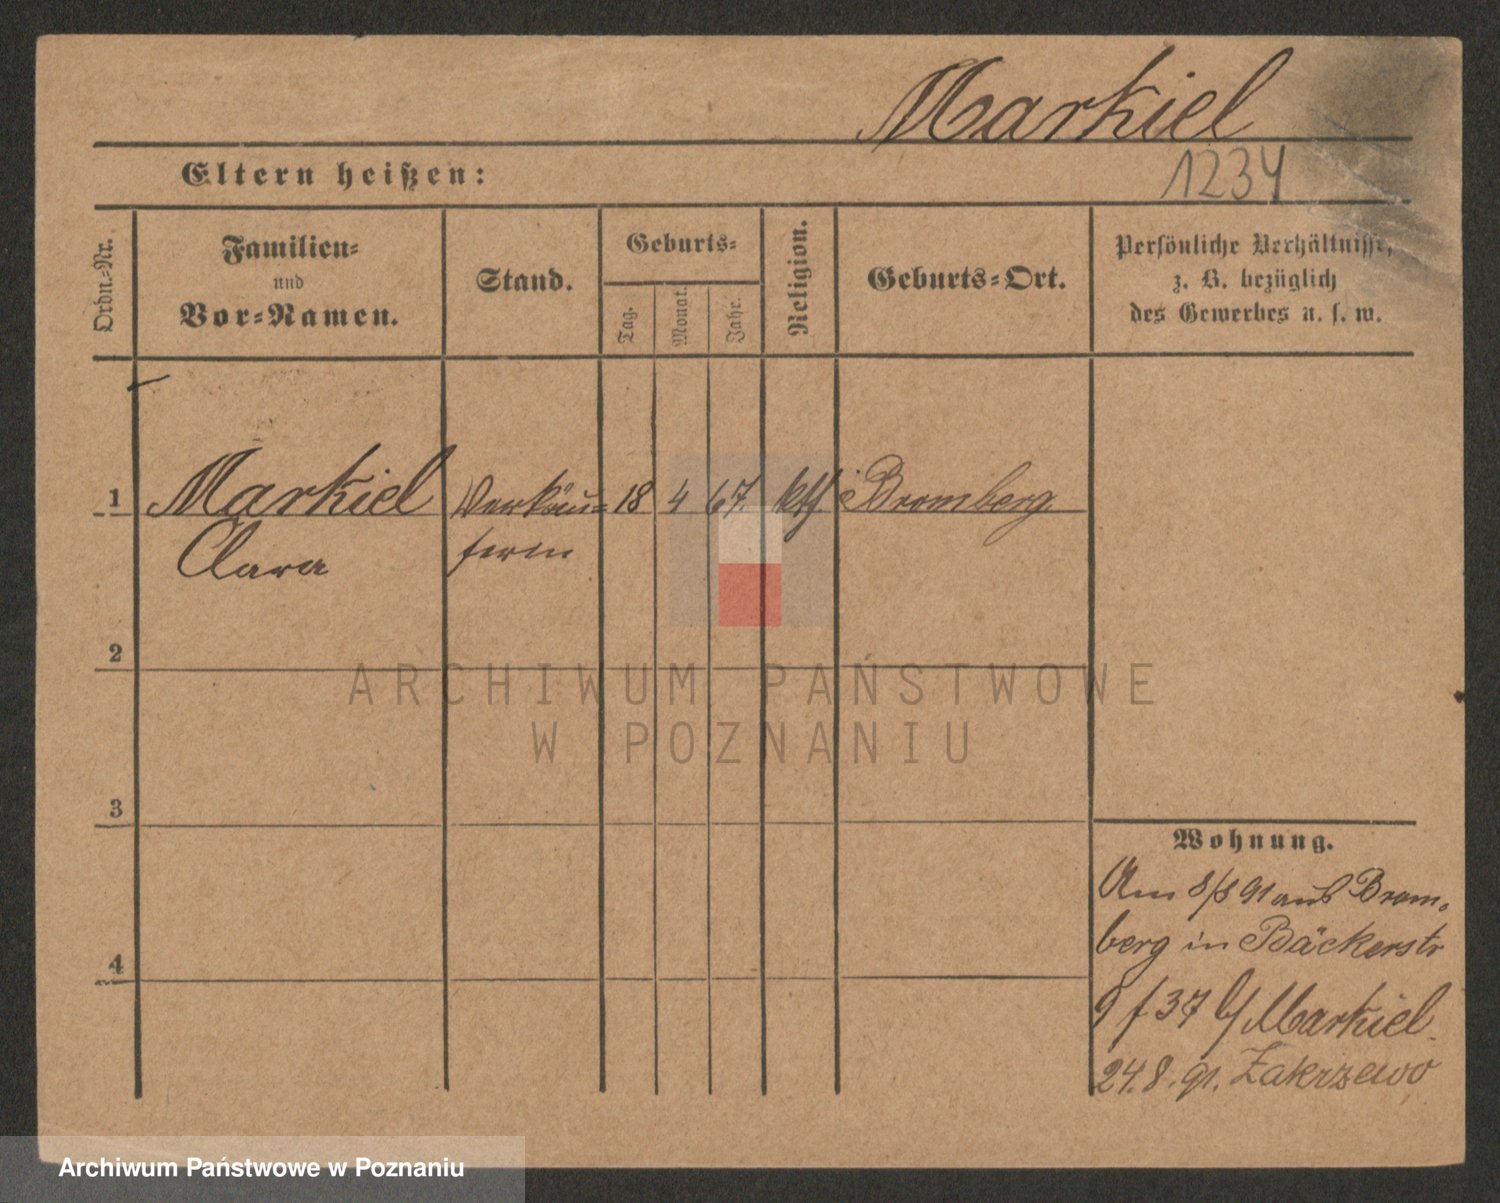 Markiel
Eltern heißen:
1234
Ordn.-Nr.
Familien-
und
Vor-Namen.
Stand.
Geburts-
Tag.
Monat.
Jahr.
Religion.
Geburts-Ort.
Persönliche Verhältnisse,
z. B. bezüglich
des Gewerbes u. s. w.
1 Markiel Verkäu- 18 4 67. kth. Bromberg
Clara ferin
2
ARCHIWUM PAŃSTWOWE
W POZNANIU
3
Wohnung.
Am 8/8 91 aus Brom-
berg in Bäckerstr
4
37 b/ Markiel.
24.8.91. Zakrzewo
Archiwum Państwowe w Poznaniu